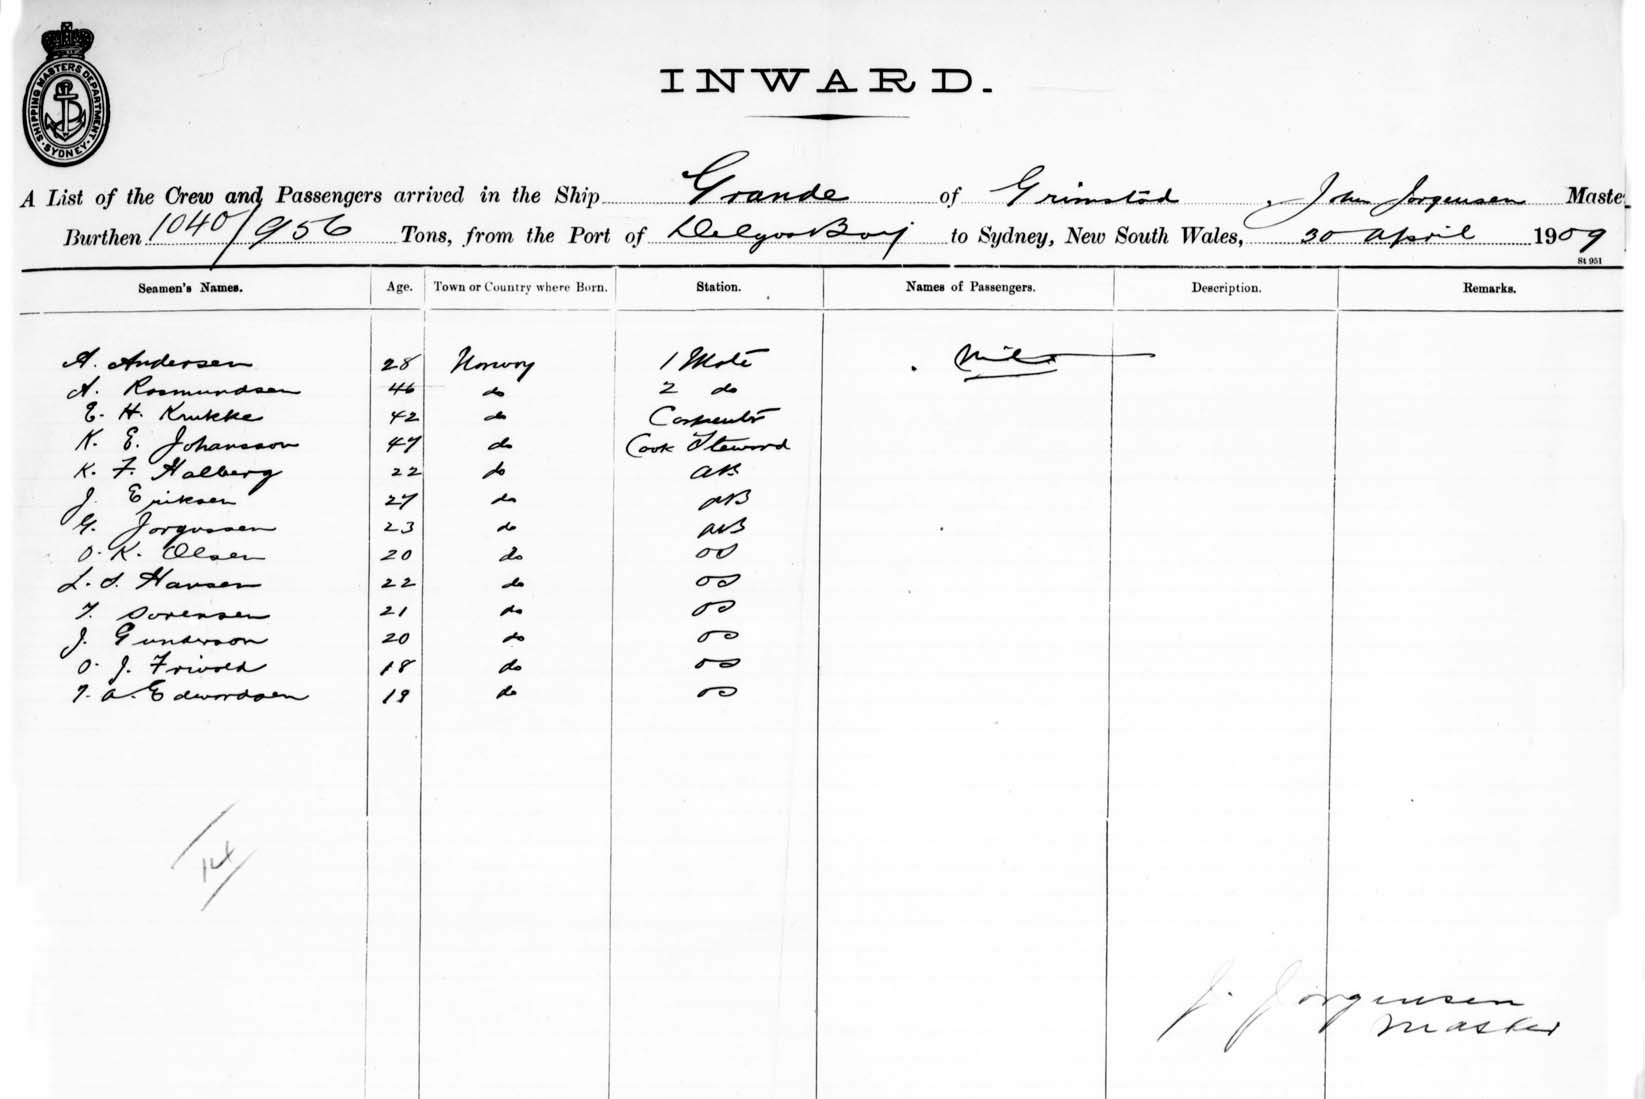 SHIPPING MASTERS DEPARTMENT. SYDNEY.
INWARD.
A List of the Crew and Passengers arrived in the Ship Grande of Grimstad, John Jorgensen Maste
Burthen 1040/956 Tons, from the Port of Delgoa Bay to Sydney, New South Wales, 30 April 1909
St 951
Seamen's Names. Age. Town or Country where Born. Station. Names of Passengers. Description. Remarks.
A. Andersen 28 Norway 1 Mate Nil
A. Rasmundsen 46 do 2 do
E. H. Krukke 42 do Carpenter
K. E. Johansson 47 do Cook Steward
K. F. Halberg 22 do AB
J. Eriksen 27 do AB
G. Jorgussen 23 do AB
O. K. Olsen 20 do OS
L. S. Hansen 22 do OS
T. Sorensen 21 do OS
J. Gunderson 20 do OS
O. J. Frivold 18 do OS
T. A. Edwardsen 19 do OS
14
J. Jorgensen
Master